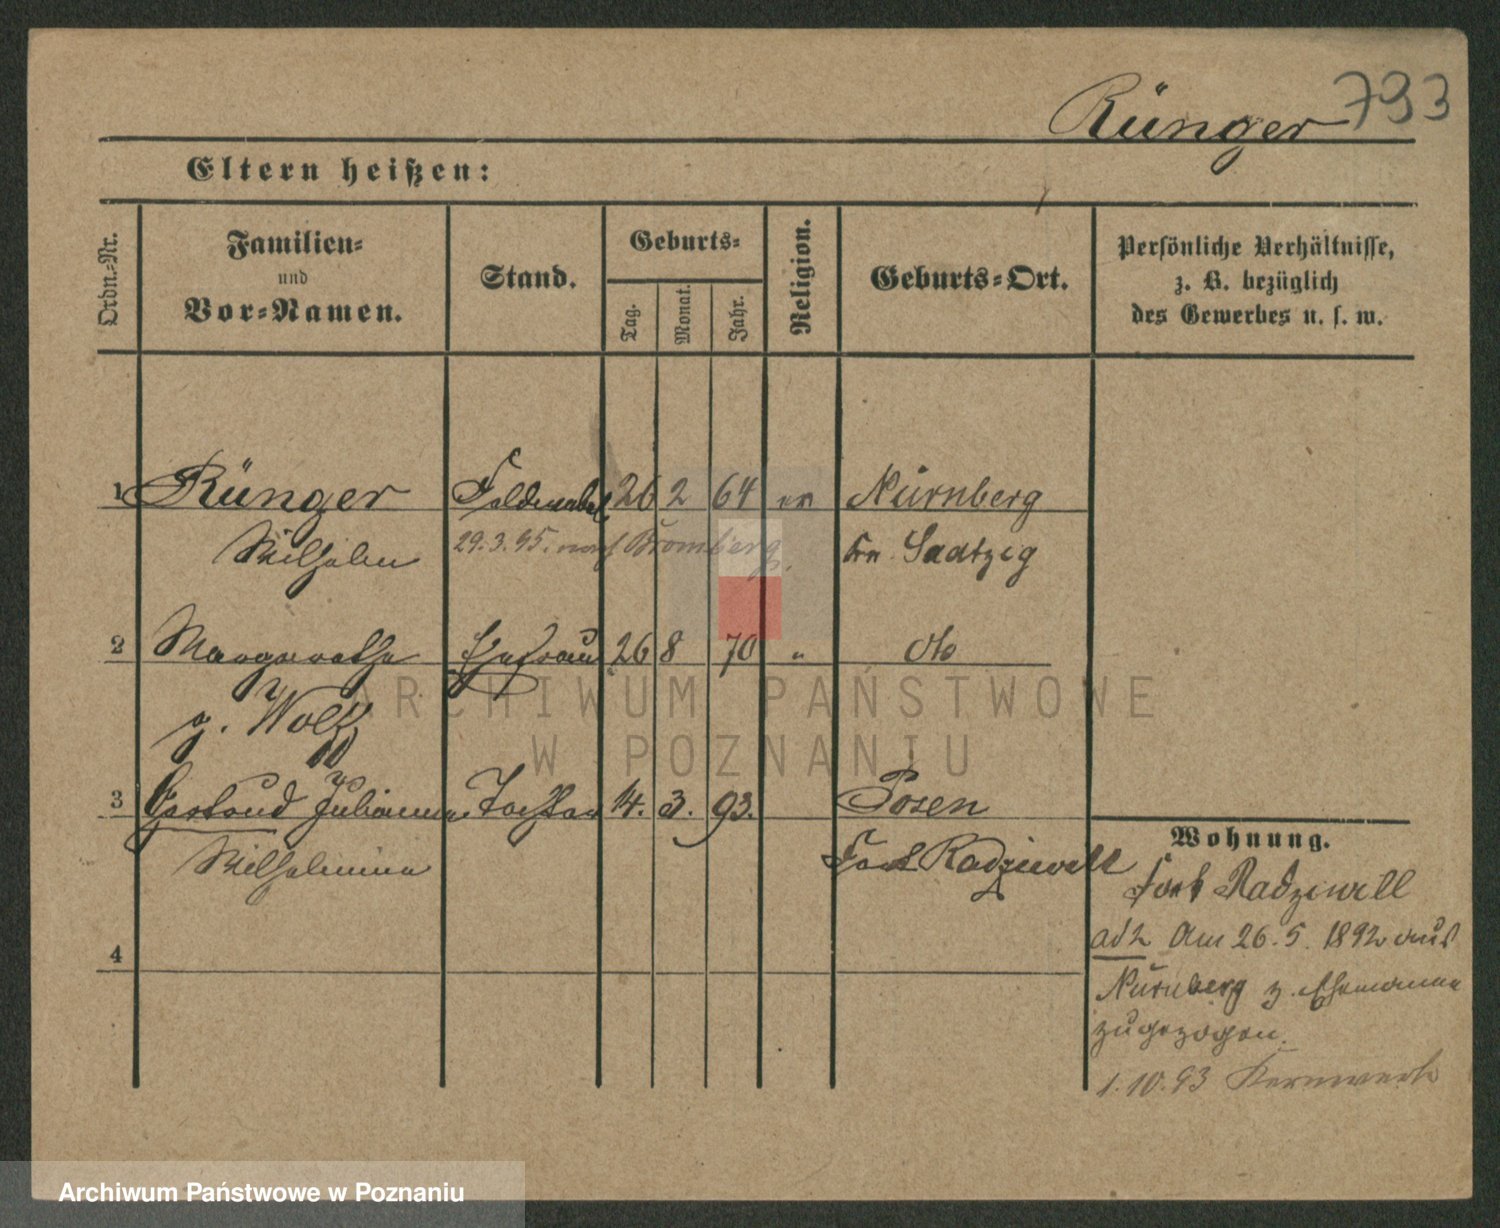 793
Rünger
Eltern heißen:
Ordn.-Nr.
Familien-
und
Vor-Namen.
Stand.
Geburts-
Tag.
Monat.
Jahr.
Religion.
Geburts-Ort.
Persönliche Verhältnisse,
z. B. bezüglich
des Gewerbes u. s. w.
1 Rünger Feldwebel 26 2 64 ev Nürnberg
Wilhelm 29.3.95. nach Bromberg. Krs. Saatzig
2 Margarethe Ehefrau 26 8 70 " dto
g. Wolff
3 Gertrud Julianna Tochter 14. 3. 93. Posen
Wilhelmine Fort Radziwill
4
Wohnung.
Fort Radziwill
ad 2 Am 26.5.1892 aus
Nürnberg z. Ehemanne
zugezogen.
1.10.93 Kernwerk
ARCHIWUM PAŃSTWOWE
W POZNANIU
Archiwum Państwowe w Poznaniu